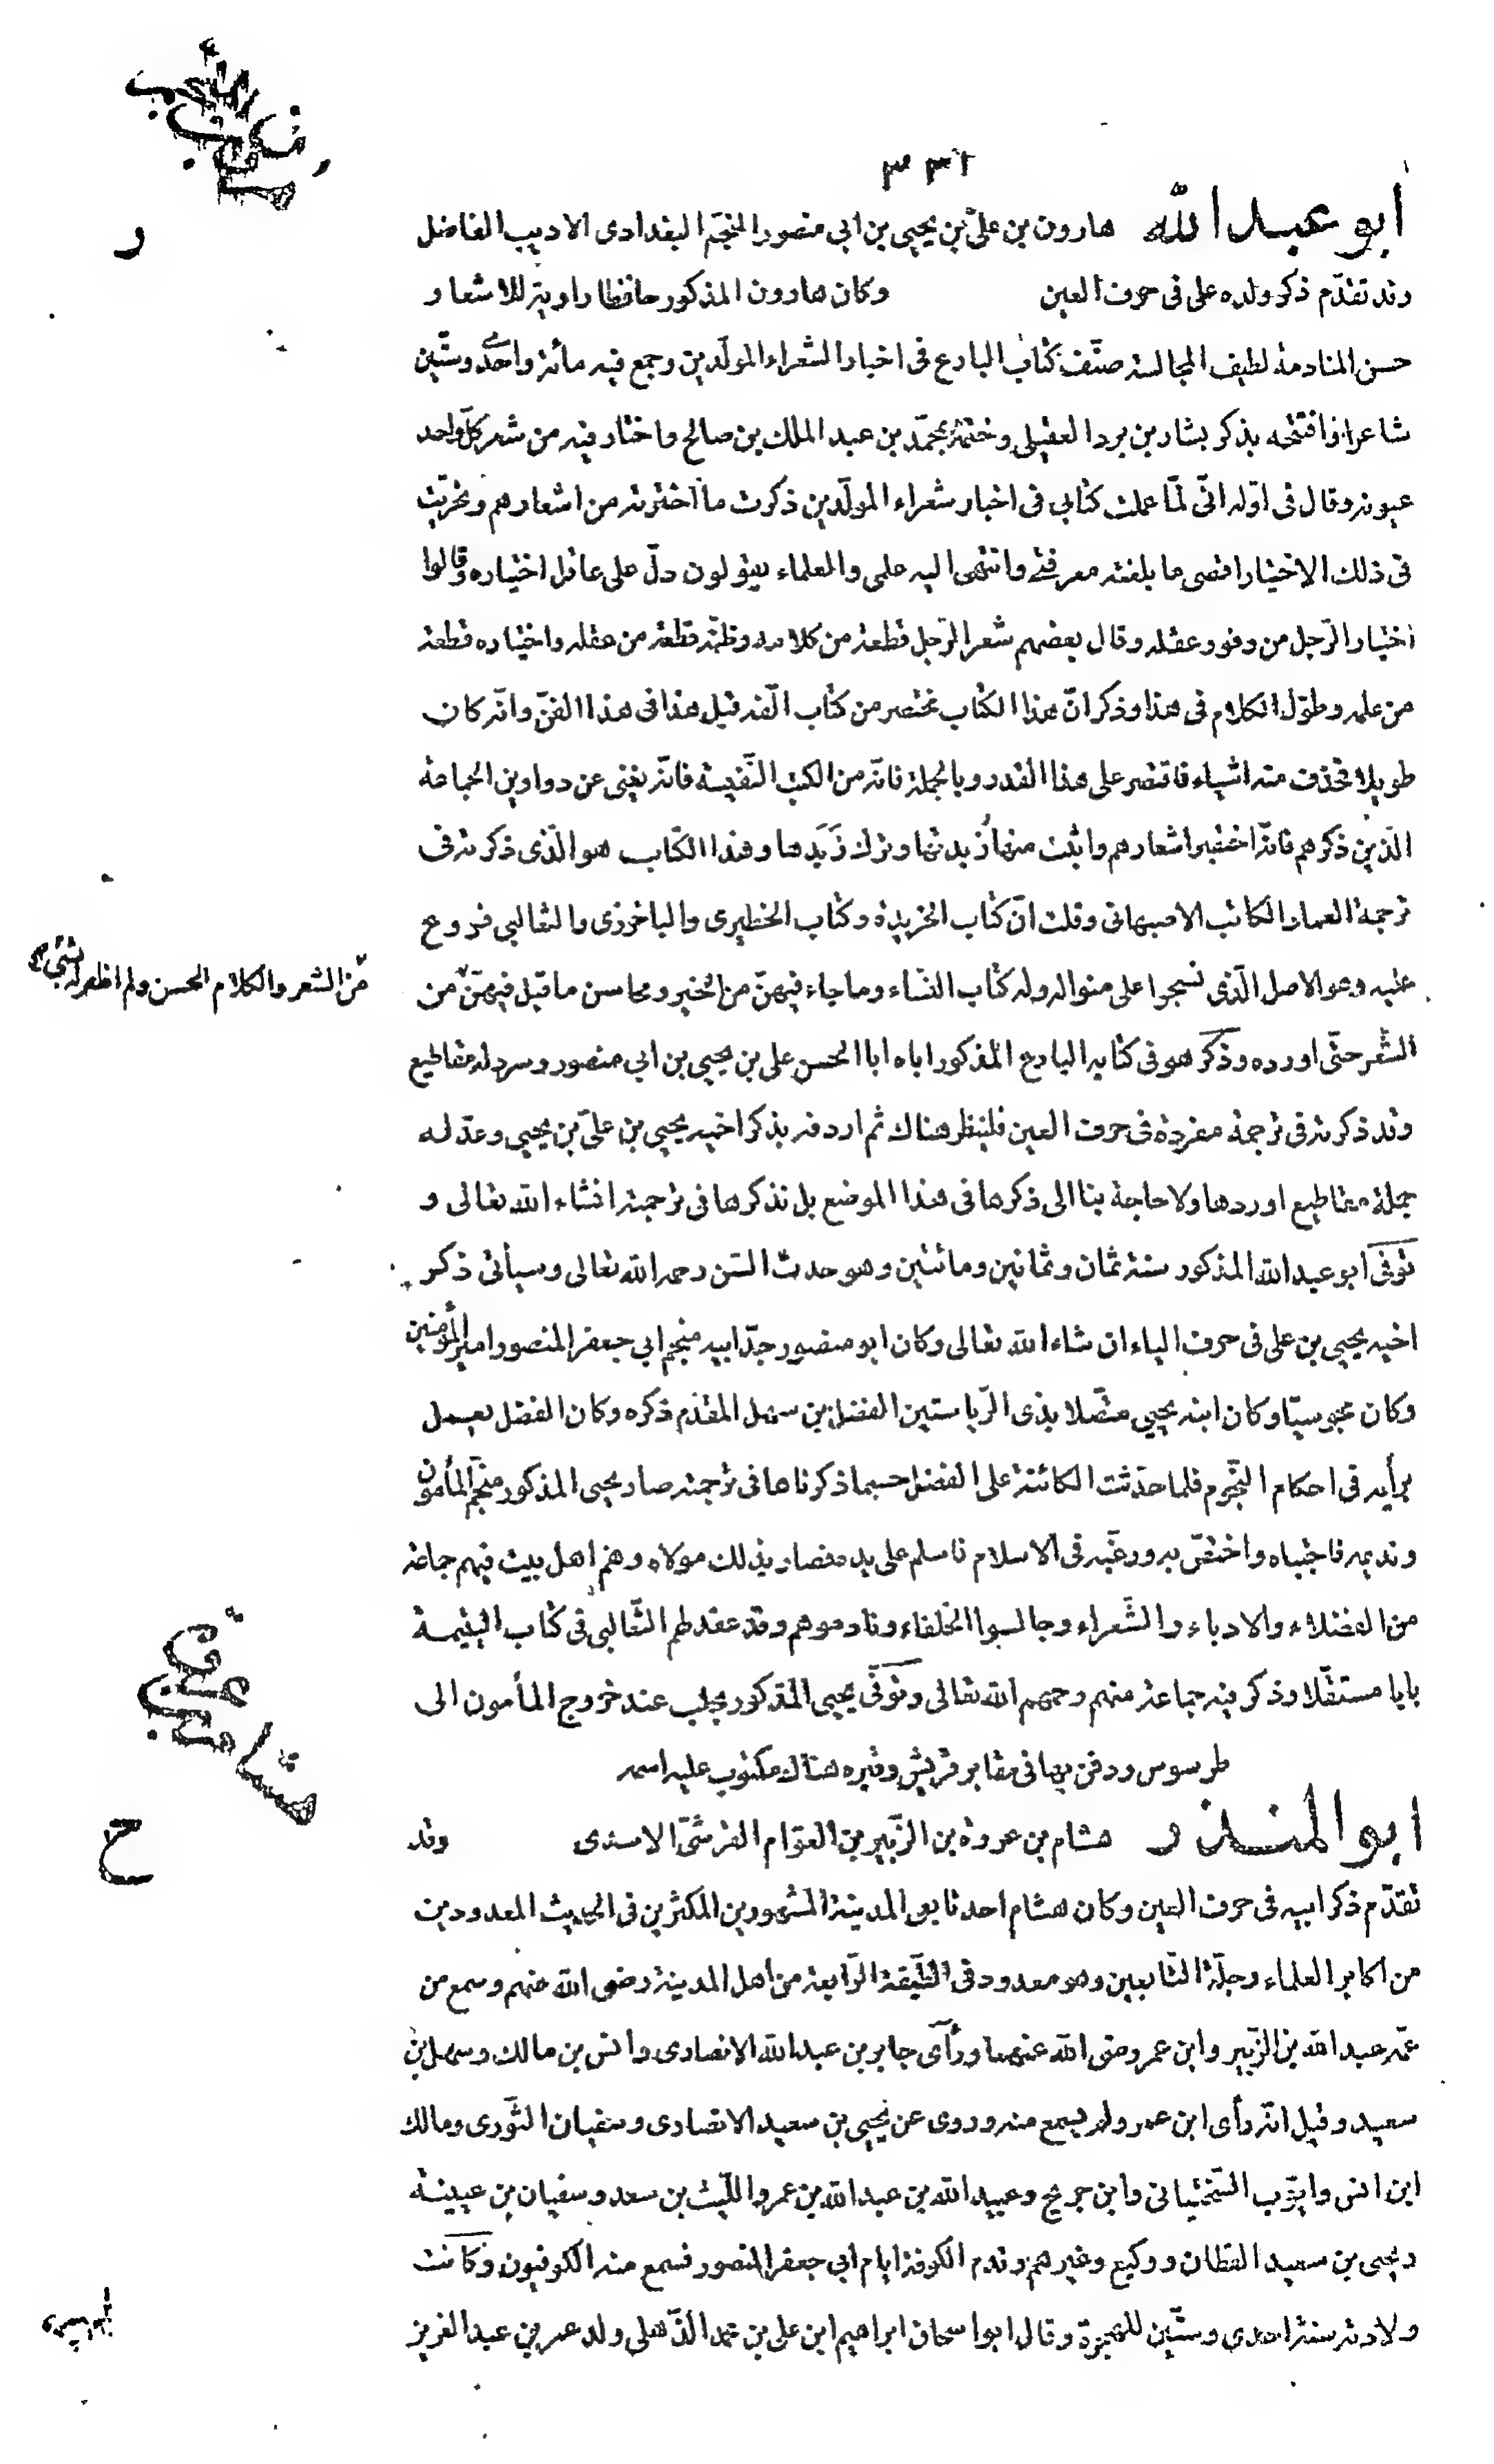 ٣٣٦
ابو عبد الله هارون بن علىّ بن يحيى بن ابى منصور المنجّم البغدادى الاديب الفاضل
وقد تقدّم ذكر ولده على فى حرف العين وكان هارون المذكور حافظا راوية للاشعار
حسن المنادمة لطيف المجالسة صنّف كتاب البارع فى اخبار الشعراء المولّدين وجمع فيه مائة واحدى وستّين
شاعرا وافتتحه بذكر بشار بن برد العقيلى وختمه بمحمّد بن عبد الملك بن صالح واختار فيه من شعر كلّ واحد
عيونه وقال فى اوّله انّى لمّا عملت كتابى فى اخبار شعراء المولّدين ذكرت ما اخترته من اشعارهم وتحرّيت
فى ذلك الاختيار اقصى ما بلغته معرفتى وانتهى اليه علمى والعلماء يقولون دلّ على عاقل اختياره وقالوا
اختيار الرّجل من وفور عقله وقال بعضهم شعر الرّجل قطعة من كلامه وظنّه قطعة من عقله واختياره قطعة
من علمه وطوّل الكلام فى هذا وذكر انّ هذا الكتاب مختصر من كتاب الّفه قبل هذا فى هذا الفنّ وانّه كان
طويلا فحذف منه اشياء فاقتصر على هذا القدر وبالجملة فانّه من الكتب النّفيسة فانّه يغنى عن دواوين الجماعة
الّذين ذكرهم فانّه اختبر اشعارهم واثبت منها زُبدتها وترك زَبَدها وهذا الكتاب هو الّذى ذكرته فى
ترجمة العماد الكاتب الاصبهانى وقلت انّ كتاب الخريدة وكتاب الخطيرى والباخرزى والثعالبى فروع
عليه وهو الاصل الّذى نسجوا على منواله وله كتاب النّساء وما جاء فيهنّ من الخبر ومحاسن ما قيل فيهنّ من
من الشعر والكلام الحسن ولم اظفر له بشئ
الشّعر حتّى اورده وذكر هو فى كتابه البارع المذكور اباه ابا الحسن على بن يحيى بن ابى منصور وسرد له مقاطيع
وقد ذكرته فى ترجمة مفردة فى حرف العين فلينظر هناك ثم اردفه بذكر اخيه يحيى بن علىّ بن يحيى وعدّ له
جملة مقاطيع اوردها ولا حاجة بنا الى ذكرها فى هذا الموضع بل نذكرها فى ترجمته انشاء الله تعالى و
توفّى ابو عبد الله المذكور سنة ثمان وثمانين ومائتين وهو حدث السّن رحمه الله تعالى وسيأتى ذكر
اخيه يحيى بن على فى حرف الياء ان شاء الله تعالى وكان ابو منصور جدّ ابيه منجم ابى جعفر المنصور امير المؤمنين
وكان مجوسيّا وكان ابنه يحيى متّصلا بذى الرّياستين الفضل بن سهل المقدّم ذكره وكان الفضل يعمل
برأيه فى احكام النّجوم فلما حدثت الكائنة على الفضل حسبما ذكرناها فى ترجمته صار يحيى المذكور منجّم المأمون
ونديمه فاجتباه واختصّ به ورغّبه فى الاسلام فاسلم على يده فصار بذلك مولاه وهم اهل بيت فيهم جماعة
من الفضلاء والادباء والشّعراء وجالسوا الخلفاء ونادموهم وقد عقد لهم الثّعالبى فى كتاب اليتيمة
بابا مستقلّا وذكر فيه جماعة منهم رحمهم الله تعالى وتوفّى يحيى المذكور بحلب عند خروج المأمون الى
طرسوس ودفن بها فى مقابر قريش وقبره هناك مكتوب عليه اسمه
ابو المنذر هشام بن عروة بن الزّبير بن العوّام القرشىّ الاسدى وقد
هشام بن عروة
ح
تقدّم ذكر ابيه فى حرف العين وكان هشام احد تابعى المدينة المشهورين المكثرين فى الحديث المعدودين
من اكابر العلماء وجلّة التّابعين وهو معدود فى الطّبقة الرّابعة من اهل المدينة رضى الله عنهم وسمع من
عمّه عبد الله بن الزّبير وابن عمر رضى الله عنهما ورأى جابر بن عبد الله الانصارى وانس بن مالك وسهل بن
سعيد وقيل انّه رأى ابن عمر ولم يسمع منه وروى عن يحيى بن سعيد الانصارى وسفيان الثّورى ومالك
ابن انس وايّوب السّختيانى وابن جريج وعبيد الله بن عبد الله بن عمر والليث بن سعد وسفيان بن عيينة
ويحيى بن سعيد القطان ووكيع وغيرهم وقدم الكوفة ايام ابى جعفر المنصور فسمع منه الكوفيون وكانت
ولادته سنة احدى وستّين للهجرة وقال ابو اسحاق ابراهيم ابن على بن محمد الذّهلى ولد عمر بن عبد العزيز